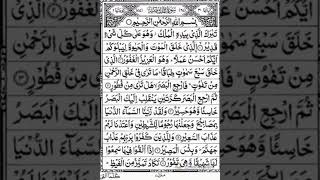 بِسْمِ اللّٰهِ الرَّحْمٰنِ الرَّحِيْمِ
تَبٰرَكَ الَّذِيْ بِيَدِهِ الْمُلْكُ وَهُوَ عَلٰى كُلِّ شَيْءٍ
قَدِيْرُ الَّذِيْ خَلَقَ الْمَوْتَ وَالْحَيٰوةَ لِيَبْلُوَكُمْ
اَيُّكُمْ اَحْسَنُ عَمَلًا وَهُوَ الْعَزِيْزُ الْغَفُوْرُ الَّذِيْ
خَلَقَ سَبْعَ سَمٰوٰتٍ طِبَاقًا مَا تَرٰى فِيْ خَلْقِ الرَّحْمٰنِ
مِنْ تَفٰوُتٍ فَارْجِعِ الْبَصَرَ هَلْ تَرٰى مِنْ فُطُوْرٍ
ثُمَّ ارْجِعِ الْبَصَرَ كَرَّتَيْنِ يَنْقَلِبْ اِلَيْكَ الْبَصَرُ
خَاسِئًا وَّهُوَ حَسِيْرٌ وَلَقَدْ زَيَّنَّا السَّمَآءَ الدُّنْيَا
بِمَصَابِيْحَ وَجَعَلْنٰهَا رُجُوْمًا لِّلشَّيٰطِيْنِ وَاَعْتَدْنَا لَهُمْ
عَذَابَ السَّعِيْرِ وَلِلَّذِيْنَ كَفَرُوْا بِرَبِّهِمْ عَذَابُ
جَهَنَّمَ وَبِئْسَ الْمَصِيْرُ اِذَآ اُلْقُوْا فِيْهَا سَمِعُوْا
لَهَا شَهِيْقًا وَّهِيَ تَفُوْرُ تَكَادُ تَمَيَّزُ مِنَ الْغَيْظِ